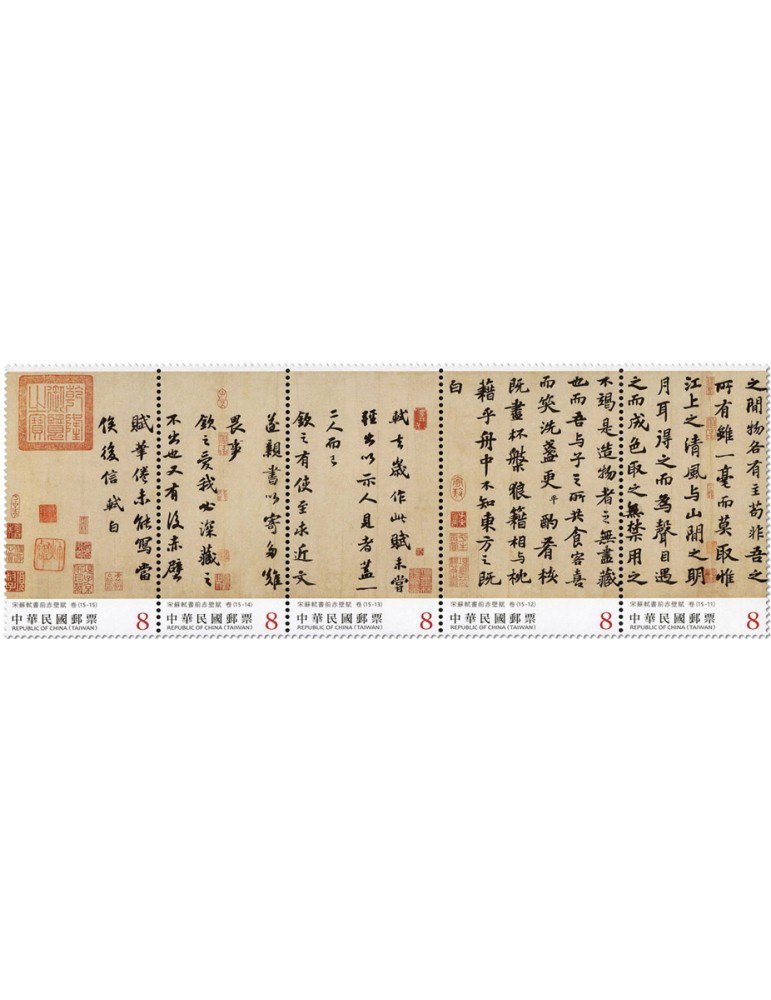 之間物各有主苟非吾之
所有雖一毫而莫取惟
江上之清風与山間之明
月耳得之而為聲目遇
之而成色取之無禁用之
不竭是造物者之無盡藏
也而吾与子之所共食客喜
而笑洗盞更平酌肴核
既盡杯槃狼籍相与枕
藉乎舟中不知東方之既
白
軾去歲作此賦未嘗
輕出以示人見者盖一
二人而已
欽之有使至求近文
遂親書以寄多難
畏事
欽之愛我必深藏之
不出也又有後赤壁
賦筆倦未能寫當
俟後信軾白
乾隆御覽之寶
宋蘇軾書前赤壁賦 卷 (15-15)
中華民國郵票 8
REPUBLIC OF CHINA (TAIWAN)
宋蘇軾書前赤壁賦 卷 (15-14)
中華民國郵票 8
REPUBLIC OF CHINA (TAIWAN)
宋蘇軾書前赤壁賦 卷 (15-13)
中華民國郵票 8
REPUBLIC OF CHINA (TAIWAN)
宋蘇軾書前赤壁賦 卷 (15-12)
中華民國郵票 8
REPUBLIC OF CHINA (TAIWAN)
宋蘇軾書前赤壁賦 卷 (15-11)
中華民國郵票 8
REPUBLIC OF CHINA (TAIWAN)